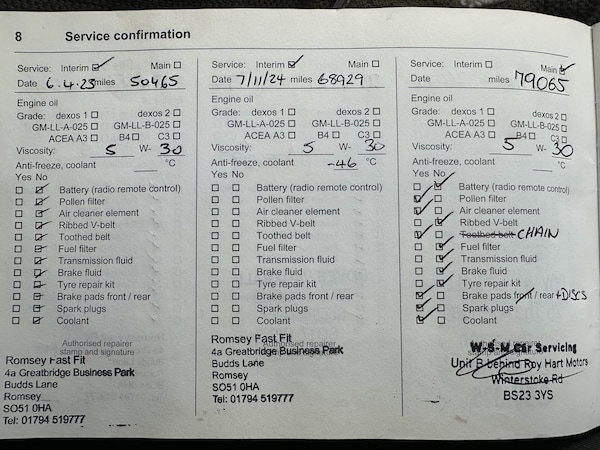 8 Service confirmation
Service: Interim Main
Date 6.4.23 miles 50465
Engine oil
Grade: dexos 1 dexos 2
GM-LL-A-025 GM-LL-B-025
ACEA A3 B4 C3
Viscosity: 5 W- 30
Anti-freeze, coolant °C
Yes No
Battery (radio remote control)
Pollen filter
Air cleaner element
Ribbed V-belt
Toothed belt
Fuel filter
Transmission fluid
Brake fluid
Tyre repair kit
Brake pads front / rear
Spark plugs
Coolant
Authorised repairer
stamp and signature
Romsey Fast Fit
4a Greatbridge Business Park
Budds Lane
Romsey
SO51 0HA
Tel: 01794 519777
Service: Interim Main
Date 7/11/24 miles 68929
Engine oil
Grade: dexos 1 dexos 2
GM-LL-A-025 GM-LL-B-025
ACEA A3 B4 C3
Viscosity: 5 W- 30
Anti-freeze, coolant -46 °C
Yes No
Battery (radio remote control)
Pollen filter
Air cleaner element
Ribbed V-belt
Toothed belt
Fuel filter
Transmission fluid
Brake fluid
Tyre repair kit
Brake pads front / rear
Spark plugs
Coolant
Authorised repairer
Romsey Fast Fit
4a Greatbridge Business Park
Budds Lane
Romsey
SO51 0HA
Tel: 01794 519777
Service: Interim Main
Date miles 79065
Engine oil
Grade: dexos 1 dexos 2
GM-LL-A-025 GM-LL-B-025
ACEA A3 B4 C3
Viscosity: 5 W- 30
Anti-freeze, coolant °C
Yes No
Battery (radio remote control)
Pollen filter
Air cleaner element
Ribbed V-belt
Toothed belt CHAIN
Fuel filter
Transmission fluid
Brake fluid
Tyre repair kit
Brake pads front / rear + DISCS
Spark plugs
Coolant
W-S-M Car Servicing
Unit B behind Roy Hart Motors
Winterstoke Rd
BS23 3YS